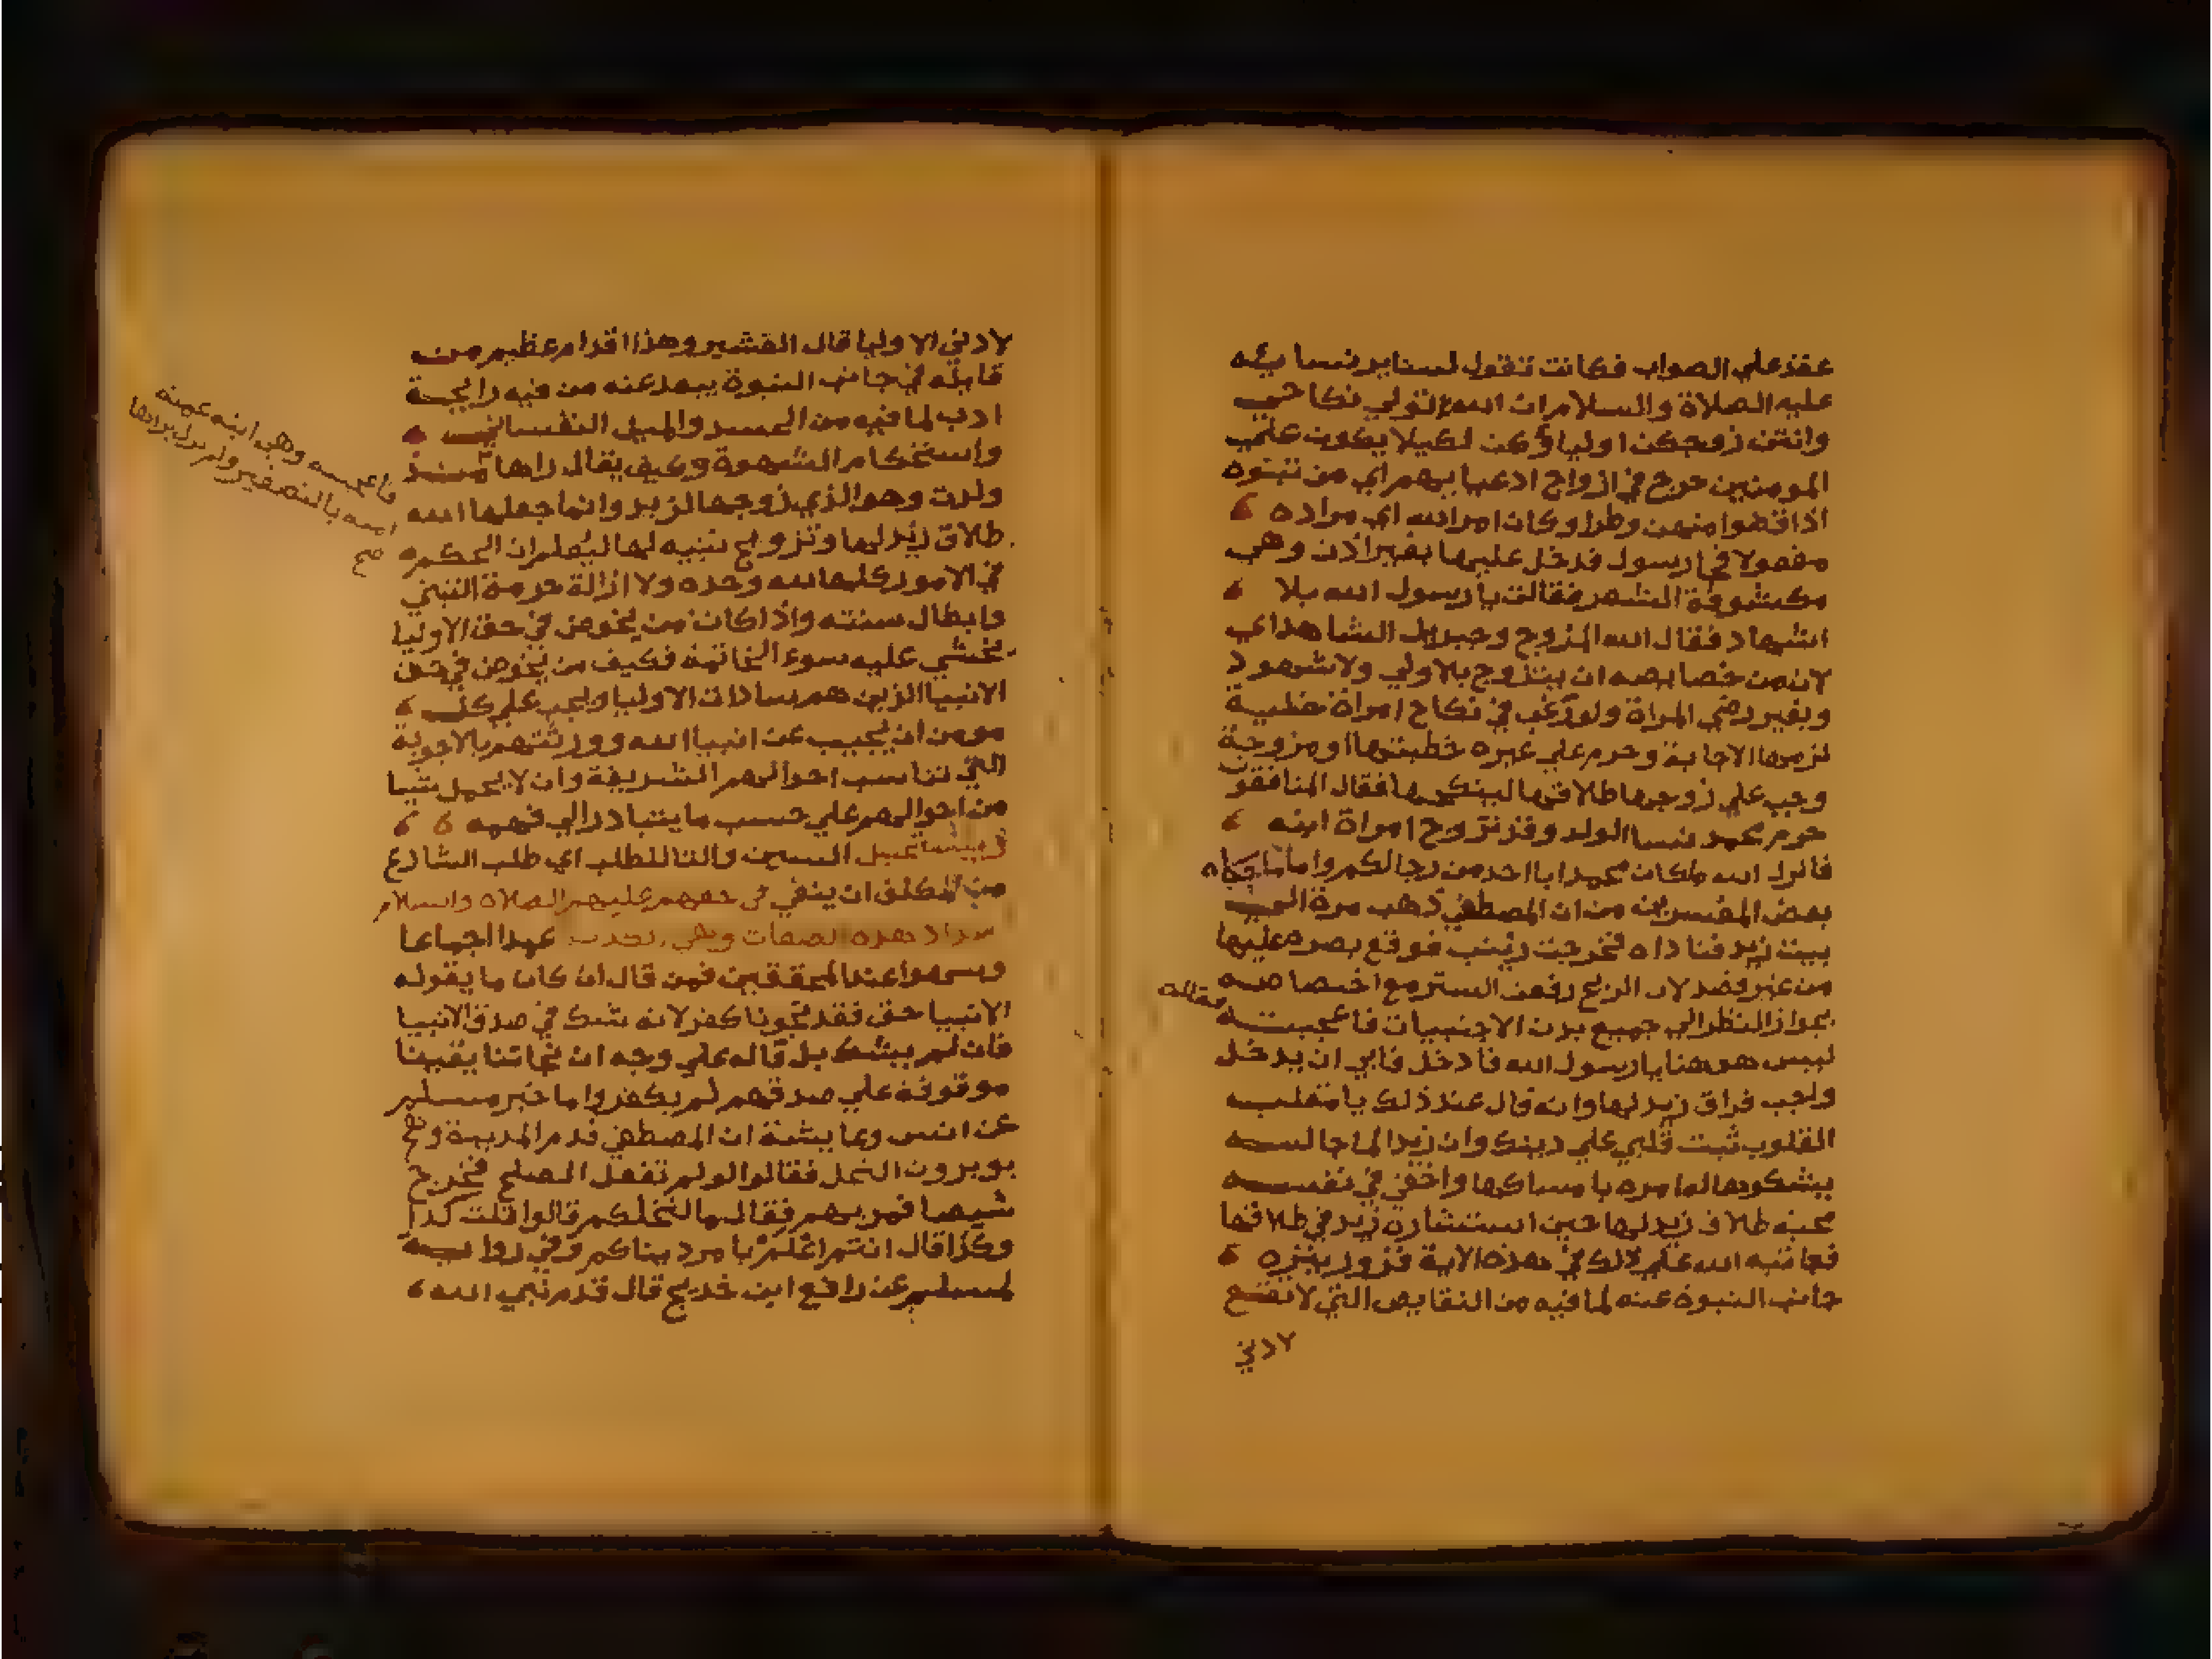 عقد علي الصواب فكانت تقول لسايرنسايه
عليه الصلاة والسلام ان الله تولي نكاحي
وانتن زوجكن اولياوكن لكيلا يكون علي
المومنين حرج في ازواج ادعيايهم اي من تبنوه
اذا قضوا منهن وطرا وكان امر الله اي مراده
مفعولا فجا رسول فدخل عليها بغير اذن وهي
مكشوفة الشعر فقالت يا رسول الله بلا
اشهاد فقال الله المزوج وجبريل الشاهد اي
لان من خصايصه ان يتزوج بلا ولي ولا شهود
وبغير رضي المراة ولو رغب في نكاح امراة خلية
لزمها الاجابة وحرم علي غيره خطبتها او مزوجة
وجب علي زوجها طلاقها لينكحها فقال المنافقون
حرم محمد نسا الولد وقد تزوج امراة ابنه
فانزل الله ما كان محمد ابا احد من رجالكم واما ما حكاه
بعض المفسرين من ان المصطفي ذهب مرة الي
بيت زيد فناداه فخرجت زينب فوقع بصره عليها
من غير قصد لان الريح رفعت الستر مع اختصاصه
بجواز النظر الي جميع بدن الاجنبيات فاعجبته فقالت
ليس هو هنا يا رسول الله فادخل فابي ان يدخل
واحب فراق زيد لها وانه قال عند ذلك يا مقلب
القلوب ثبت قلبي علي دينك وان زيدا لما جا اليه
يشكوها له امره بامساكها واخفي في نفسه
محبة طلاق زيد لها حين استشاره زيد في طلاقها
فعاتبه الله علي ذلك في هذه الاية فزور ينزه
جانب النبوة عنه لما فيه من النقايص التي لا تقع
لادني
لادني الاوليا قال القشيري وهذا اقدام عظيم من
قايله في جانب النبوة يبعد عنه من فيه رايحة
ادب لما فيه من الحسد والميل النفساني
واستحكام الشهوة وكيف يقال راها منذ
ولدت وهو الذي زوجها لزيد وانما جعل الله
طلاق زيد لها وتزويج نبيه لها ليعلم ان الحكم
في الامور كلها لله وحده ولا ازالة حرمة التبني
وابطال سنته واذا كان من يخوض في حق الاوليا
يخشي عليه سوء الخاتمة فكيف من يخوض في حق
الانبيا الذين هم سادات الاوليا ويجب علي كل
مومن ان يجيب عن انبيا الله وورثتهم بالاجوبة
التي تناسب احوالهم الشريفة وان لا يحمل شيا
من احوالهم علي حسب ما يتبادر الي فهمه
السين والتا للطلب اي طلب الشارع
من المكلف ان ينفي في حقهم عليهم الصلاه والسلام
هذه الصفات وهي عمدا اجماعا
وسهوا عند المحققين فمن قال ان كان ما يقوله
الانبيا حق فقد نجونا كفر لانه شك في صدق الانبيا
فان لم يشك بل قاله علي وجه ان نجاتنا يقينا
موقوفة علي صدقهم لم يكفر واما خبر مسلم
عن انس وعايشة ان المصطفي قدم المدينة وهم
يوبرون النخل فقالوا لو لم تفعل لصلح فخرج
شيصا فمر بهم فقال ما لنخلكم قالوا قلت كذا
وكذا قال انتم اعلم بامر دنياكم وفي رواية
لمسلم عن رافع ابن خديج قال قدم نبي الله
فاعجبته وهي ابنة عمته
اميمة بالتصغير ولم يزل يراها
صح